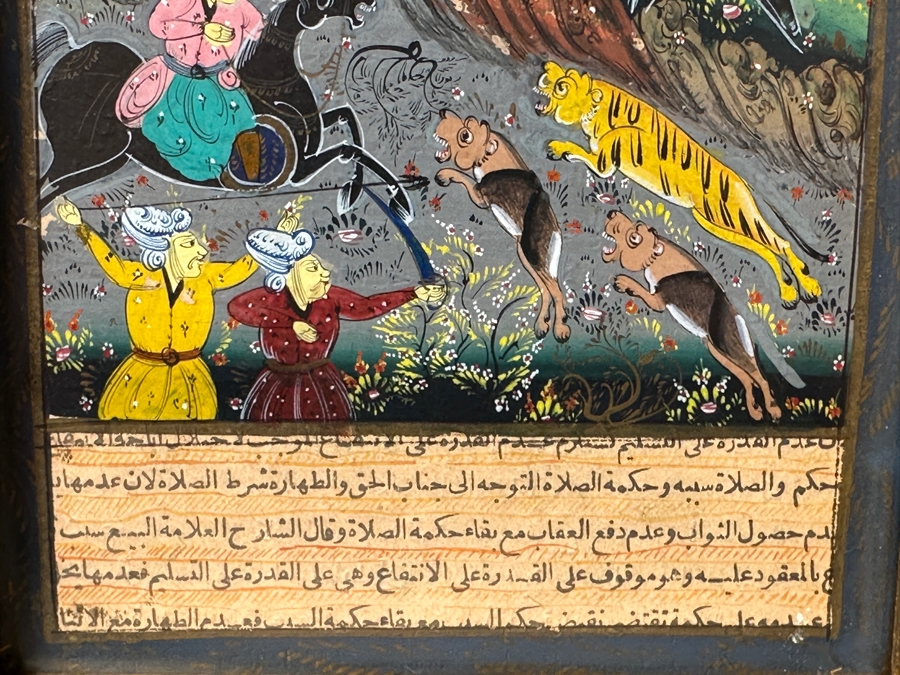 عدم القدرة على التسليم يستلزم عدم القدرة على الانتفاع الموجب لاحتمال
حكم والصلاة سببه وحكمة الصلاة التوجه الى جناب الحق والطهارة شرط الصلاة لان عدمها
دم حصول الثواب وعدم دفع العقاب مع بقاء حكمة الصلاة وقال الشارح العلامة البيع سبب
بالمعقود عليه وهو موقوف على القدرة على الانتفاع وهي على القدرة على التسليم فعدمها
على حكمة تقتضى نقيض حكم السبب مع بقاء حكمة السبب فعدم الطهارة